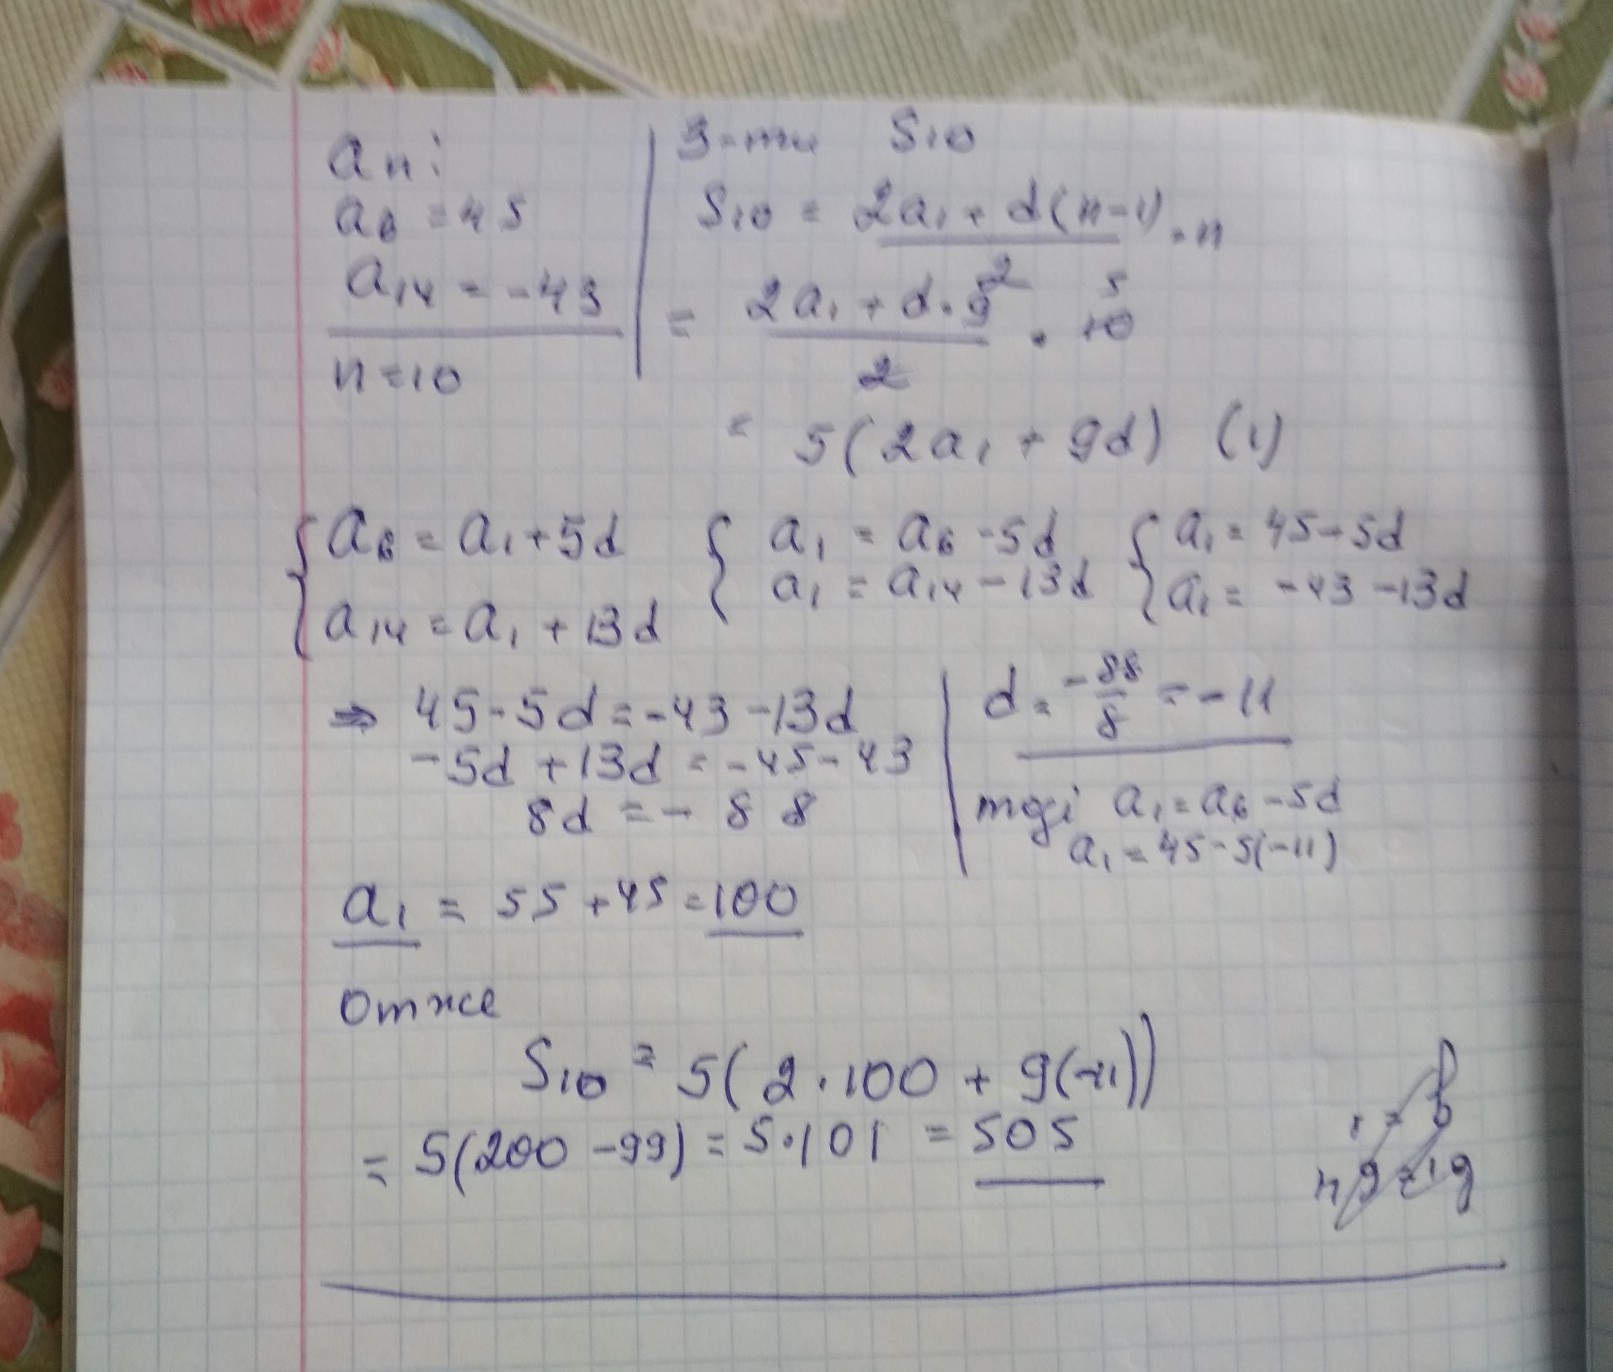 an:
a6 = 45
a14 = -43
n=10
З-ти S10
S10 = 2a1 + d(n-1) · n
2
= 2a1 + d·9 · 10
2
5
= 5(2a1 + 9d) (1)
{ a6 = a1+5d { a1 = a6 -5d { a1 = 45-5d
a14 = a1 + 13d a1 = a14 - 13d a1 = -43 -13d
⇒ 45-5d=-43-13d
-5d +13d = -45-43
8d = - 88
d = -88/8 = -11
тоді a1 = a6 -5d
a1 = 45-5(-11)
a1 = 55 + 45 = 100
Отже
S10 = 5(2·100 + 9(-11))
= 5(200 -99) = 5·101 = 505